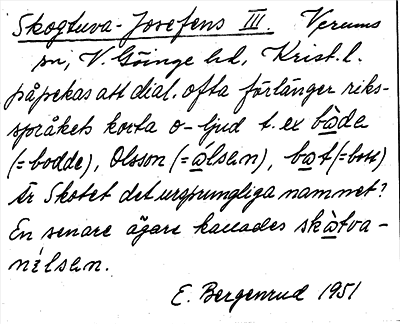 Skogtuva-Josefens III. Verums
sn, V. Göinge hd, Krist. l.
påpekas att dial. ofta förlänger riks-
språkets korta o-ljud t. ex bàda
(=bodde), Olsson (=àlsen), bat (=bott)
Är Skotet det ursprungliga namnet?
En senare ägare kallades skàtva-
nilsen.
E. Bergenrud 1951